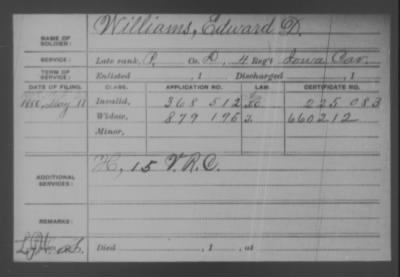 NAME OF SOLDIER: Williams, Edward D.
SERVICE: Late rank, P, Co. D, 4 Reg't Iowa Cav.
TERM OF SERVICE: Enlisted , 1 Discharged , 1 .
DATE OF FILING. CLASS. APPLICATION NO. LAW. CERTIFICATE NO.
1880, May 18 Invalid, 368 512 225 083
Widow, 879 195 660212
Minor,
ADDITIONAL SERVICES: H, 15 V.R.C.
REMARKS:
Died , 1 , at